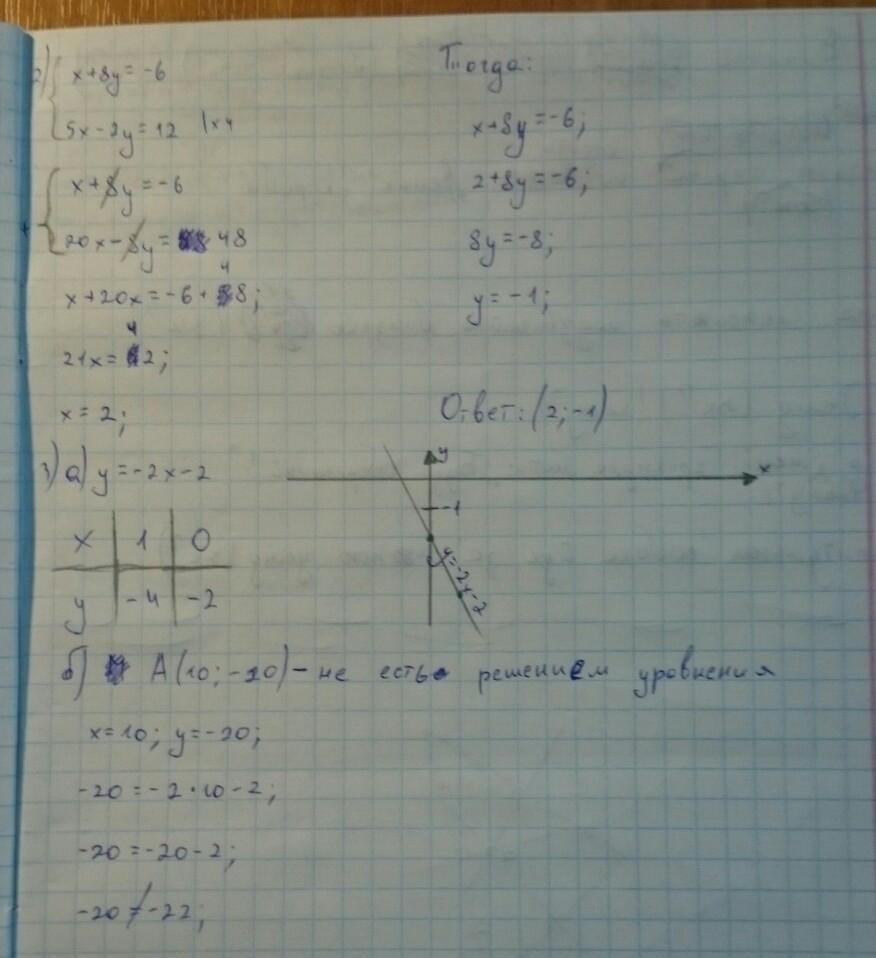 2) x+8y=-6
5x-2y=12 |x4
x+8y=-6
20x-8y= 48
x+20x=-6+48;
21x=42;
x=2;
Тогда:
x+8y=-6;
2+8y=-6;
8y=-8;
y=-1;
Ответ: (2;-1)
3) а) y=-2x-2
x 1 0
y -4 -2
y
x
-1
y=-2x-2
б) A(10;-20)-не есть решением уровнения
x=10; y=-20;
-20=-2·10-2;
-20=-20-2;
-20≠-22;